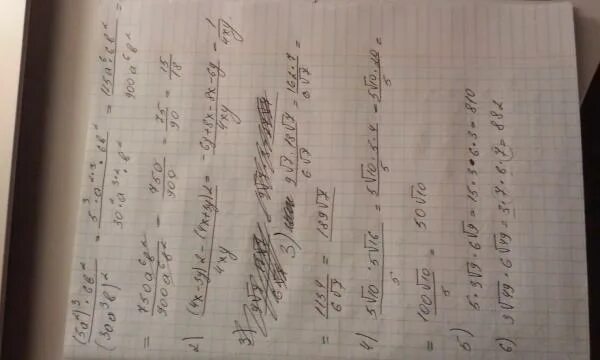 (5a²)³ · 6b² / (30a³b)² = 5³ · a²·³ · 6b² / 30² · a³·² · b² = 125a⁶ · 6b² / 900a⁶b² =
= 750a⁶b² / 900a⁶b² = 750 / 900 = 75 / 90 = 15 / 18
2) (4x-3y)2 - (4x+3y)2 / 4xy = -6y+8x-8x-6y / 4xy = 1 / 4xy
3)
3) 9√7 · 18√7 / 6√7 = 162·7 / 6√7 =
= 1134 / 6√7 = 189√7
4) 5√10 · 5√16 / 5 = 5√10 · 5·4 / 5 = 5√10·20 / 5 =
= 100√10 / 5 = 50√10
5) 5·3√9·6√9 = 15·3·6·3 = 810
6) 3√49·6√49 = 3·7·6·7 = 882